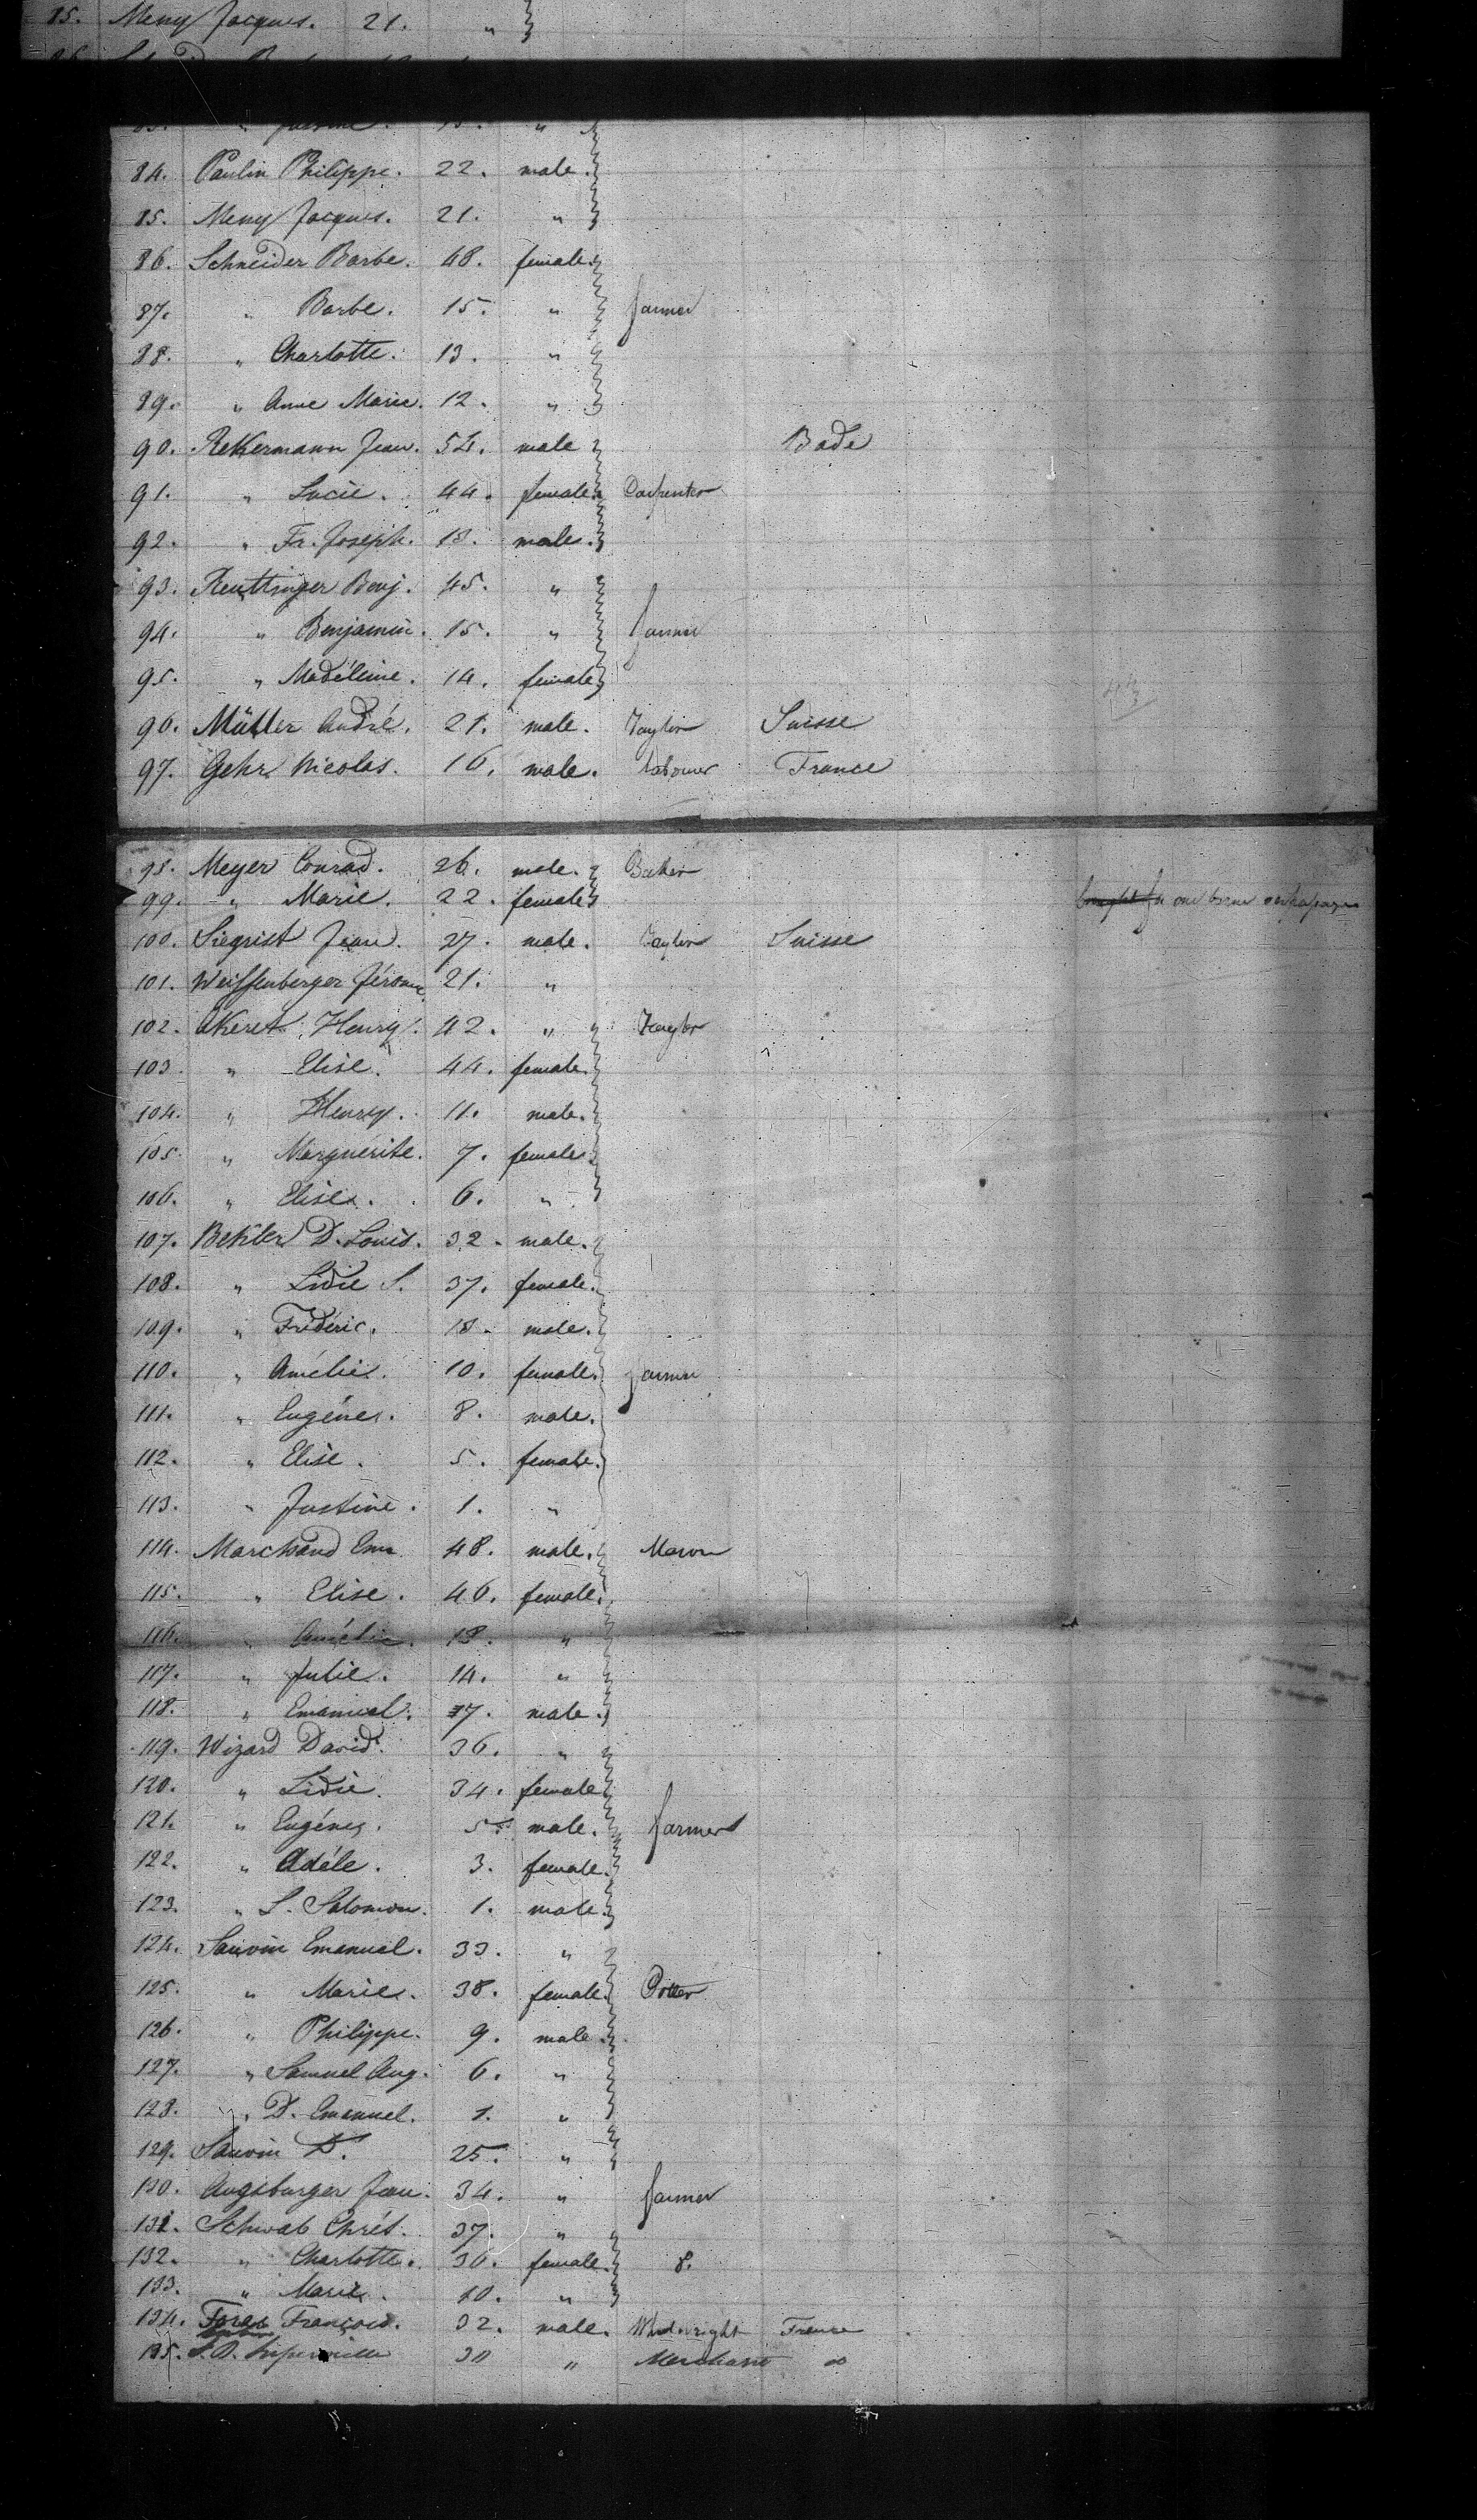 85. Meny Jacques. 21. "
84. Paulin Philippe. 22. male.
85. Meny Jacques. 21. "
86. Schneider Barbe. 48. female.
87. " Barbe. 15. " farmer
88. " Charlotte. 13. "
89. " Anne Marie. 12. "
90. Rekermann Jean. 54. male Bade
91. " Lucie. 44. female. Carpenter
92. " Fr. Joseph. 13. male.
93. Reuttinger Benj. 45. "
94. " Benjamin. 15. " farmer
95. " Madéleine. 14. female
96. Müller André. 21. male. Taylor Suisse
97. Gehr Nicolas. 16. male. labourer France
98. Meyer Conrad. 26. male. Baker
99. " Marie. 22. female
100. Siegrist Jean. 27. male. Taylor Suisse
101. Weissenberger Jérome 21. "
102. Akeret Henry. 42. " Taylor
103. " Elise. 44. female.
104. " Henry. 11. male.
105. " Marguérite. 7. female.
106. " Elise. 6. "
107. Bekler D. Louis. 32. male.
108. " Lidie S. 37. female.
109. " Fréderic. 18. male.
110. " Amélie. 10. female. farmer
111. " Eugéne. 8. male.
112. " Elise. 5. female.
113. " Justine. 1. "
114. Marchand Em. 48. male. Mason
115. " Elise. 46. female.
116. " Amélie. 18. "
117. " Julie. 14. "
118. " Emanuel. 7. male.
119. Wizard David. 36. "
120. " Lidie. 34. female
121. " Eugéne. 5. male. farmer
122. " Adéle. 3. female.
123. " S. Salomon. 1. male.
124. Sauvin Emanuel. 33. "
125. " Marie. 38. female. Potter
126. " Philippe. 9. male.
127. " Samuel Aug. 6. "
128. " D. Emanuel. 1. "
129. Sauvin D. 25. "
130. Augsburger Jean. 34. " farmer
131. Schwab Chrét. 37. "
132. " Charlotte. 36. female.
133. " Marie. 10. "
134. François. 32. male. Wheelwright France
135. 30 " Merchant do